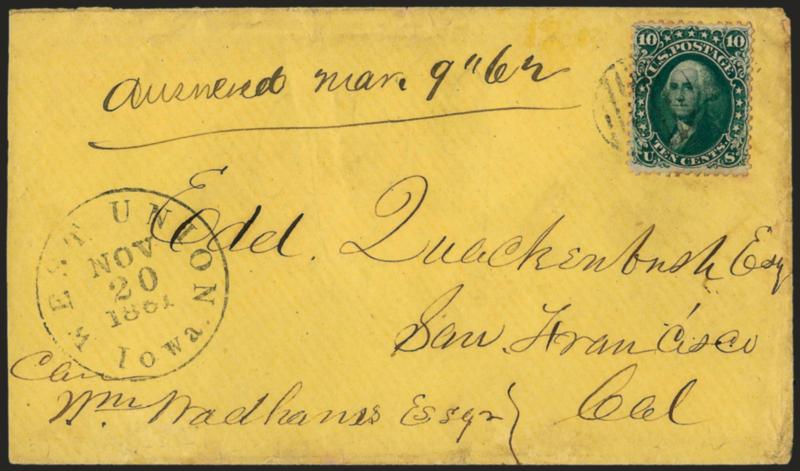 answered mar. 9" 62
10 10
U.S. POSTAGE
TEN CENTS.
U S.
WEST UNION
NOV
20
1861
Iowa.
Edd. Quackenbush Esq
San Francisco
Cal
Care
Wm Wadhams Esqr